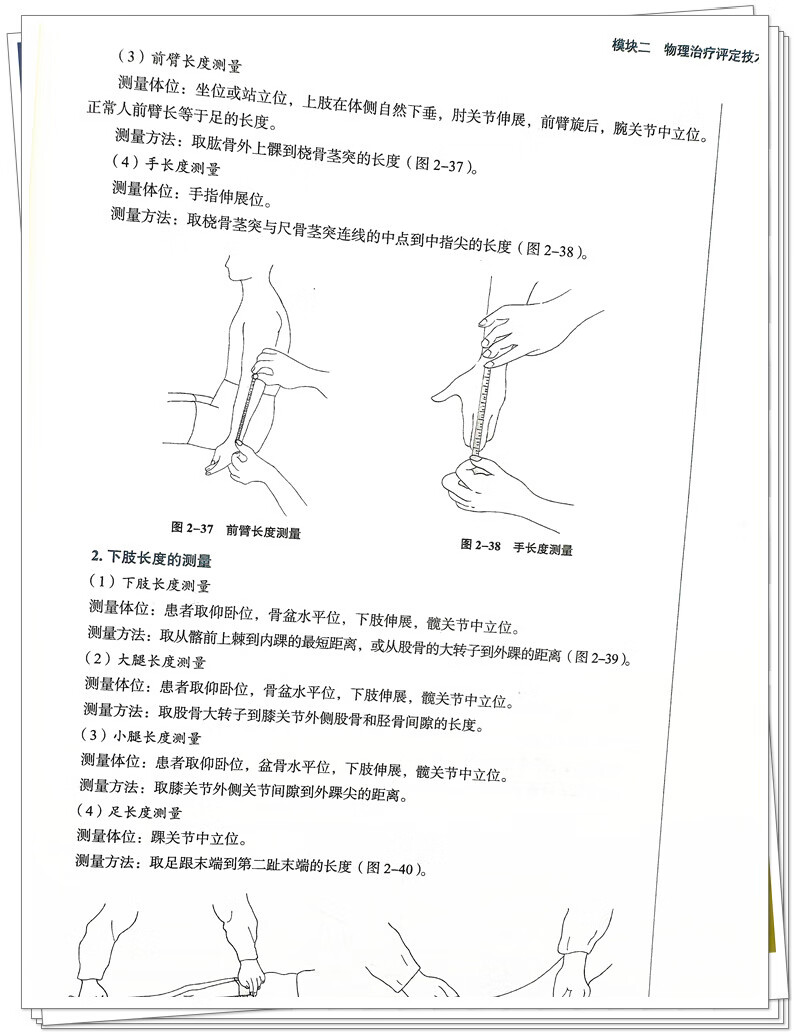 模块二 物理治疗评定技
（3）前臂长度测量
测量体位：坐位或站立位，上肢在体侧自然下垂，肘关节伸展，前臂旋后，腕关节中立位。
正常人前臂长等于足的长度。
测量方法：取肱骨外上髁到桡骨茎突的长度（图 2-37）。
（4）手长度测量
测量体位：手指伸展位。
测量方法：取桡骨茎突与尺骨茎突连线的中点到中指尖的长度（图 2-38）。
图 2-37 前臂长度测量
图 2-38 手长度测量
2. 下肢长度的测量
（1）下肢长度测量
测量体位：患者取仰卧位，骨盆水平位，下肢伸展，髋关节中立位。
测量方法：取从髂前上棘到内踝的最短距离，或从股骨的大转子到外踝的距离（图 2-39）。
（2）大腿长度测量
测量体位：患者取仰卧位，骨盆水平位，下肢伸展，髋关节中立位。
测量方法：取股骨大转子到膝关节外侧股骨和胫骨间隙的长度。
（3）小腿长度测量
测量体位：患者取仰卧位，盆骨水平位，下肢伸展，髋关节中立位。
测量方法：取膝关节外侧关节间隙到外踝尖的距离。
（4）足长度测量
测量体位：踝关节中立位。
测量方法：取足跟末端到第二趾末端的长度（图 2-40）。